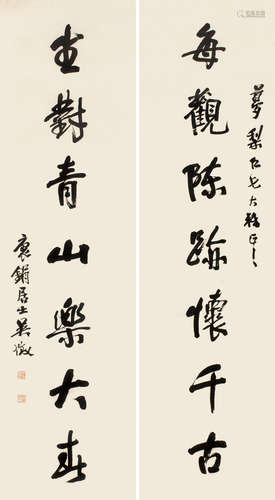 夢梨仁兄大雅正之
每觀陳跡懷千古
坐對青山樂大
袌鋗居士吳徵